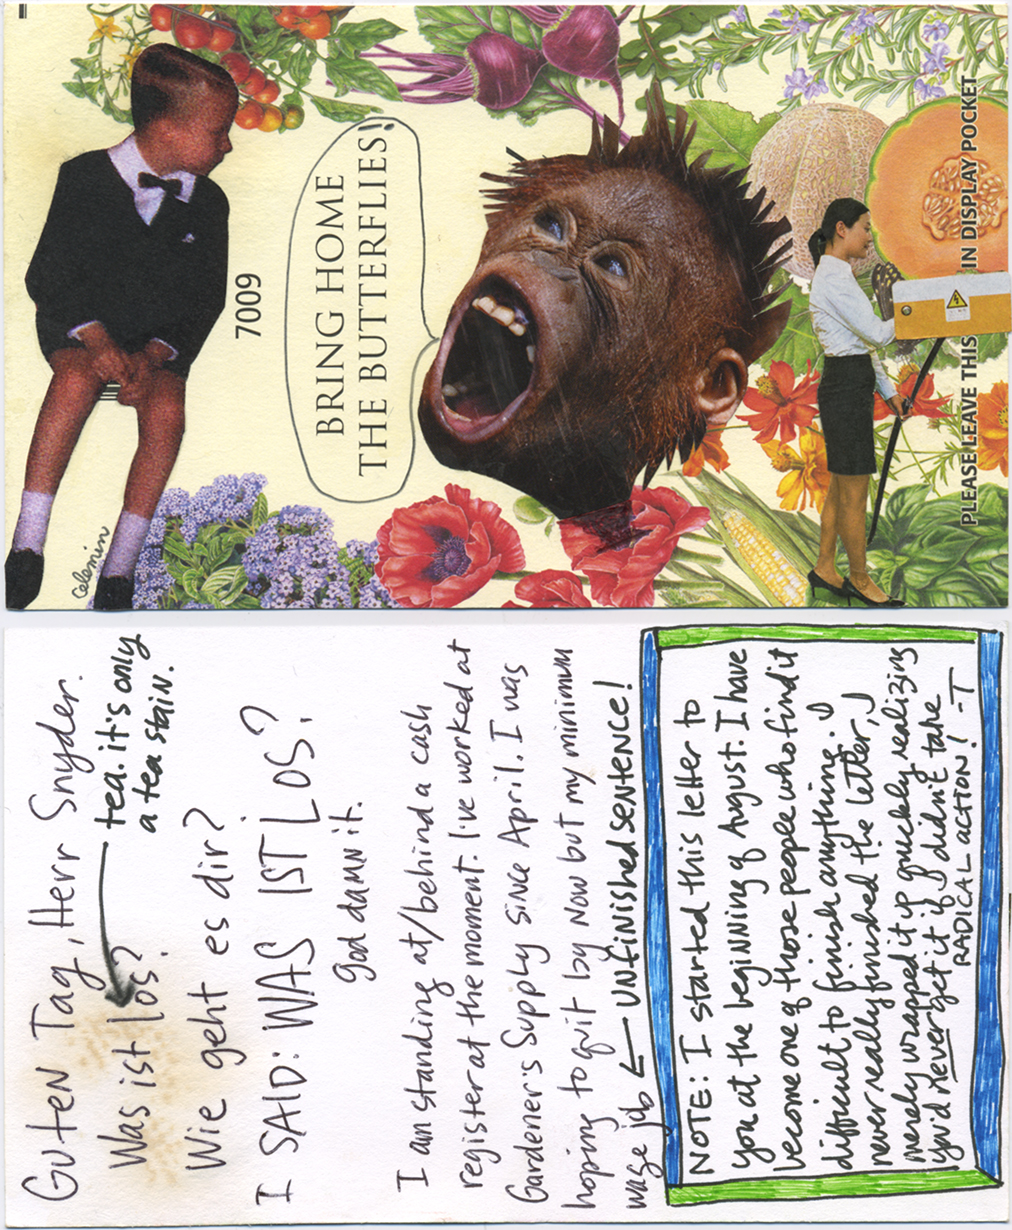 BRING HOME
THE BUTTERFLIES!
7009
Celemin
PLEASE LEAVE THIS IN DISPLAY POCKET
Guten Tag, Herr Snyder.
Was ist los?
tea. it's only
a tea stain.
Wie geht es dir?
I SAID: WAS IST LOS?
god damn it.
I am standing at/behind a cash
register at the moment. I've worked at
Gardener's Supply since April. I was
hoping to quit by now but my minimum
wage job ← UNFINISHED SENTENCE!
NOTE: I started this letter to
you at the beginning of August. I have
become one of those people who find it
difficult to finish anything. I
never really finished the letter, I
merely wrapped it up quickly realizing
you'd never get it if I didn't take
RADICAL ACTION! -T